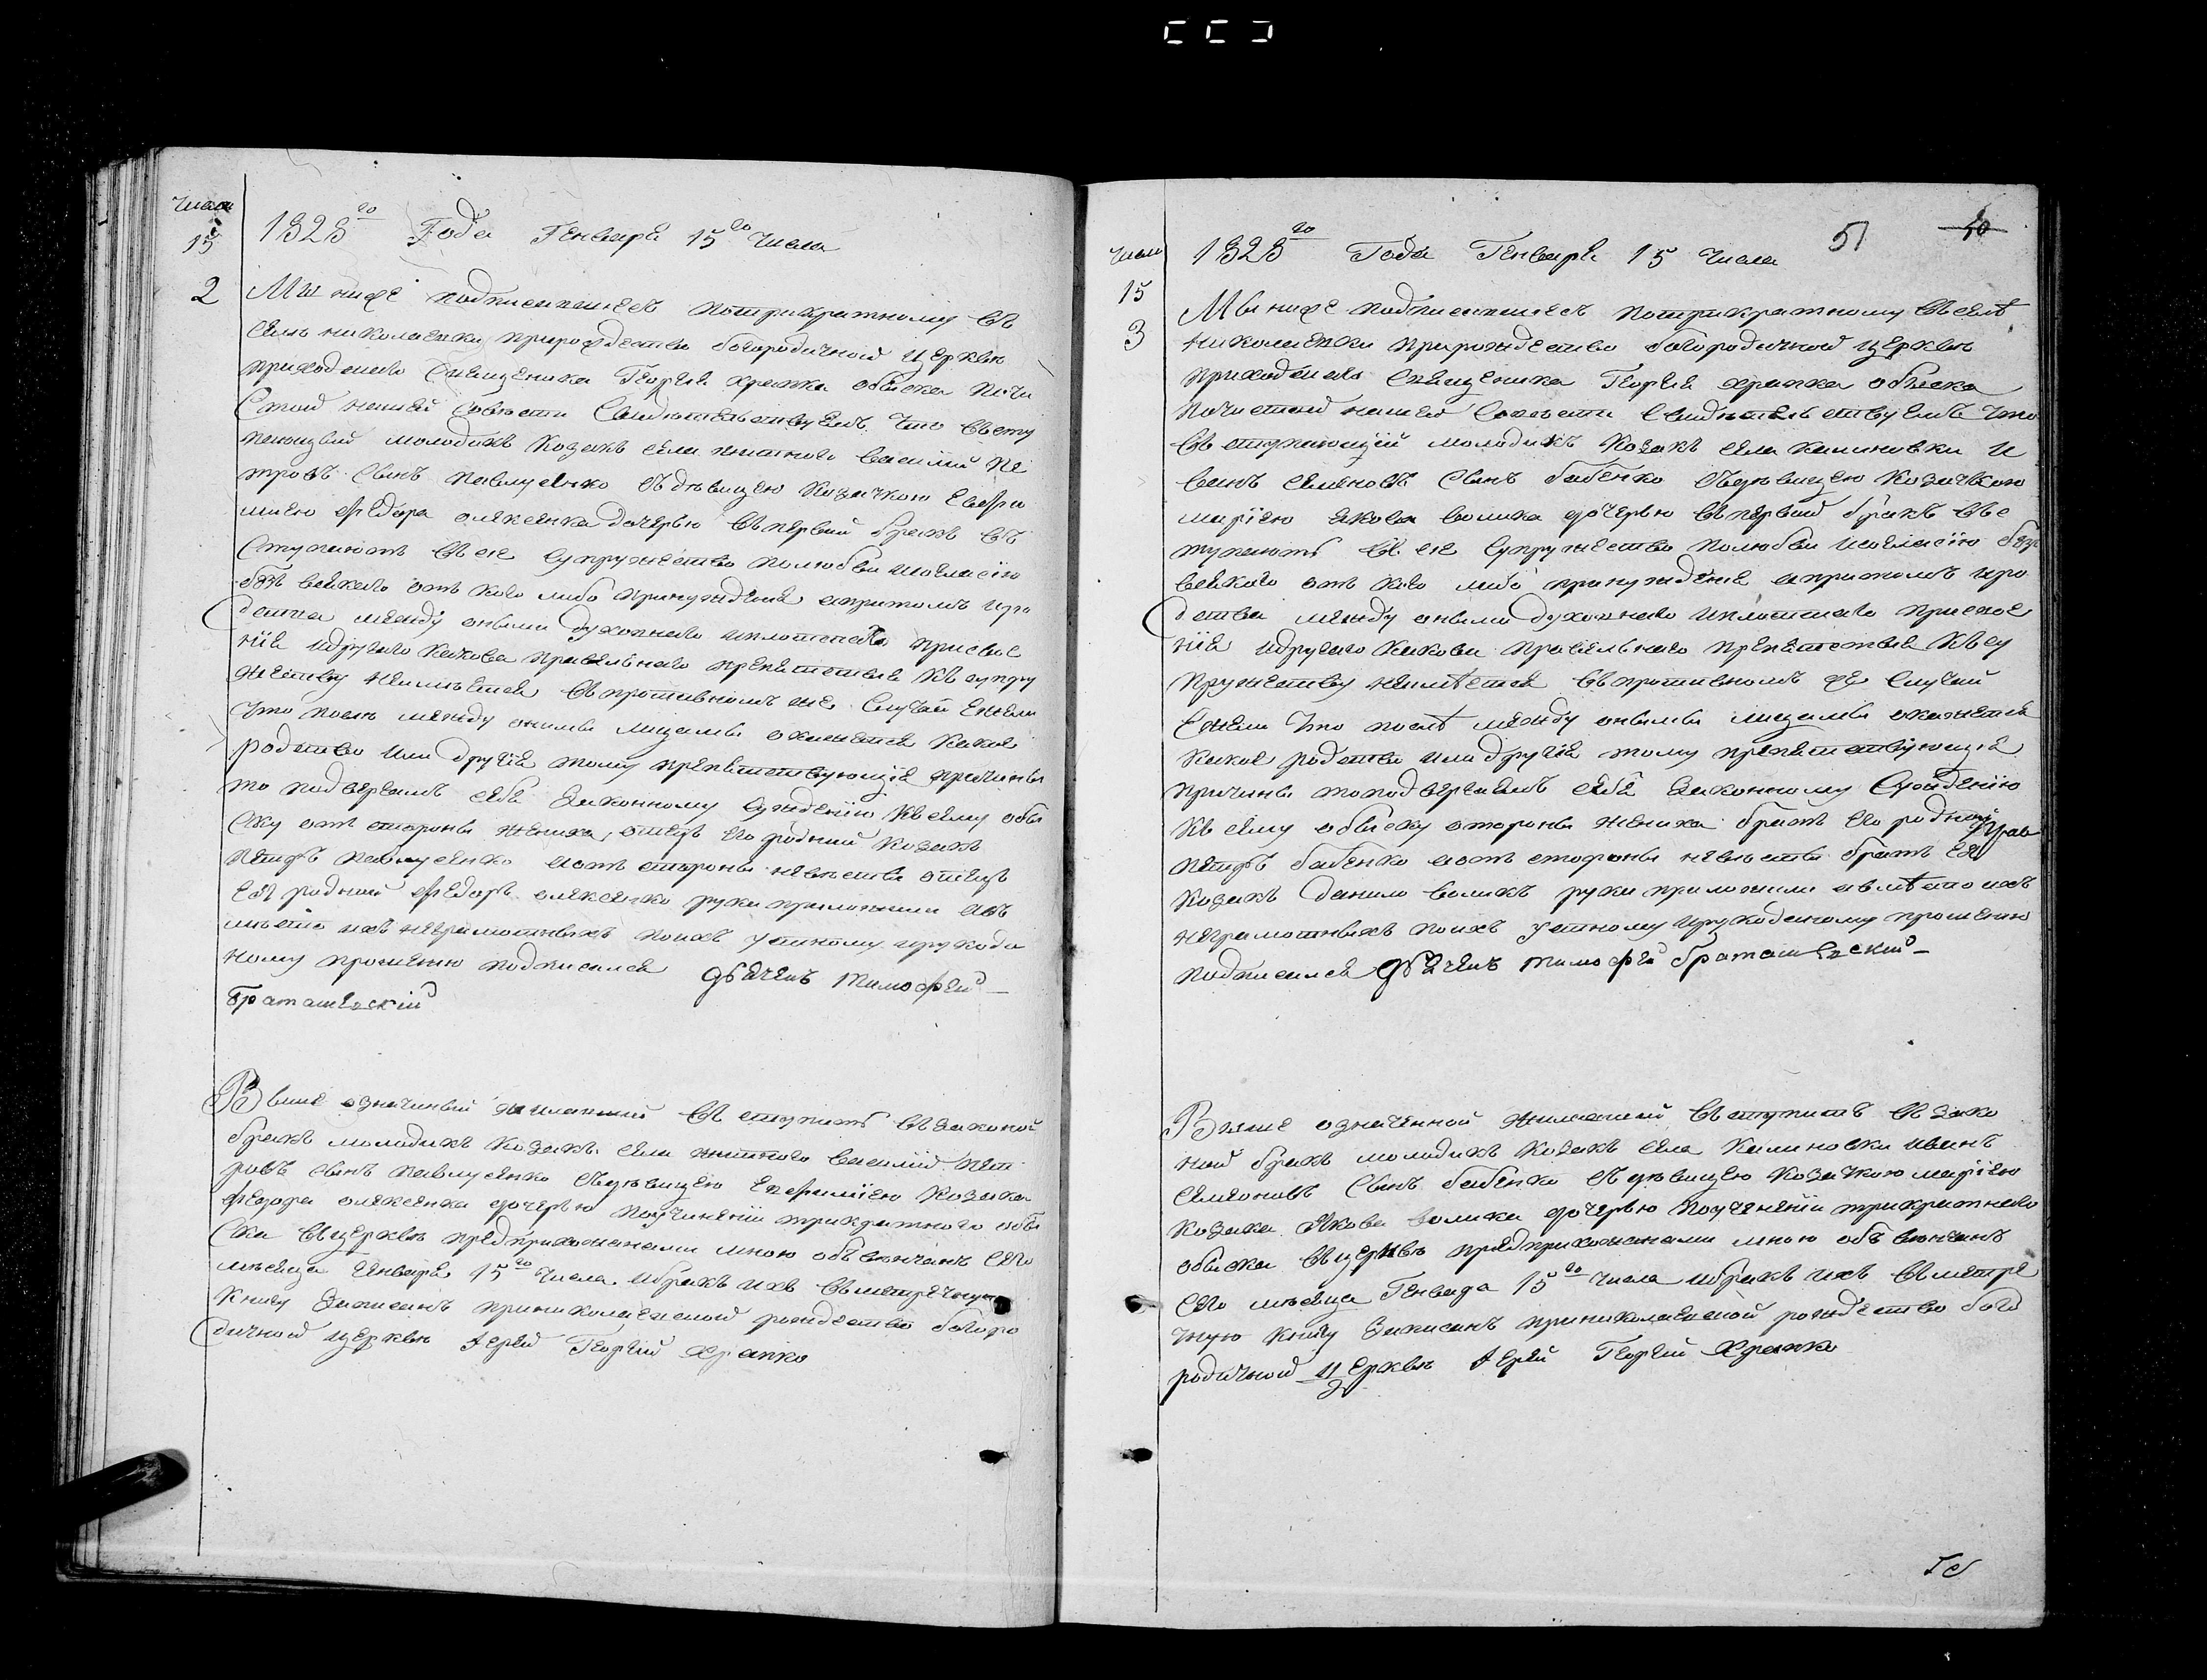 числа
15
2
1828го Года Генваря 15го Числа
Мы ниже подписавшиесь потрикратному въ
селѣ николаевки прирождество богородичной церквѣ
приходского Священика Георгия храпка обыска почи
стой нашей Совѣсти Свидѣтельствуемъ Что Въсту
пающый молодикъ козакъ села житного василий пе
тровъ сынъ павлусенко съдѣвицею козачкою Евфи
миею федора олексенка дочерью въпервый бракъ въ
Ступаютъ въ сие Супружество полюбви исогласию
безъ всякого отъ кого либо принуждения апритомъ иро
дства между оными духовнаго иплотскаго присвое
ния идругого какова правильнаго препятствия къ супру
жеству неимѣется въпротивномъ же Случай Ежели
что послѣ между оными лицами окажется какое
родство или другия тому препятствующия причины
то подвергаемъ себя Законному суждению Къ сему обы
ску отъ стороны жениха отецъ его родний козакъ
петръ павлусенко аотъ стороны невѣсты отецъ
Ея родний федоръ олексенко руки приложили авъ
мѣсто ихъ неграмотныхъ поихъ устному ирукода
ному прошению подписался дьячекъ Тимофей
Браташевский
Выше означиный желаний въступить взаконой
бракъ молодикъ козакъ села житного василий пет
ровъ сынъ павлусенко съдѣвицею Евфимиею козака
федора олексенка дочерью поучинении трикратного обы
ска въцерквѣ предприхожанами мною обвѣнчанъ сего
мѣсяца Генваря 15го числа ибракъ ихъ въметричную
книгу Записанъ приниколаевской рождество богоро
дичной церквѣ Иерей Георгий Храпко
51 50
числа
15
3
1828го Года Генваря 15 числа
Мы ниже подписавшиесь потрикратному въселѣ
николаевки прирождество богородичной церквѣ
приходскаго Священика Георгия храпка обыска
почистой нашей Совѣсти Свидѣтельствуемъ что
въступающий молодикъ козакъ села калиновки и
ванъ семеновъ сынъ бабенко съдѣвицею козачкою
мариею якова волика дочерью въпервый бракъ въс
тупаютъ въ сие Супружество полюбви исогласию безъ
всякого отъ кого либо принуждения апритомъ иро
дства между оными духовнаго иплотскаго присвое
ния идругого какова правильнаго препятствия къ су
пружеству неимѣется въпротивномъ же случай
Ежели что послѣ между оными лицами окажется
какое родство или другия тому препятствующия
причины топодвергаемъ себя законному Суждению
къ сему обыску стороны жениха братъ его родный
петръ бабенко аотъ стороны невѣсты братъ Ея
козакъ данило воликъ руки приложили авмѣсто ихъ
неграмотныхъ поихъ устному ирукоданому прошению
подписался дьячекъ Тимофей браташевский
Выше означенной желаний въступить въ зако
ной бракъ молодикъ козакъ села калиновки иванъ
семеновъ сынъ бабенко съдѣвицею козачкою мариею
козака якова волика дочерью поучинении трикратнаго
обыска въцерквѣ предприхожанами мною обвѣнчанъ
сего мѣсяца Генваря 15го числа ибракъ ихъ въметри
чную книгу записанъ приниколаевской рождество бого
родичной церквѣ Иерей Георгий Храпко